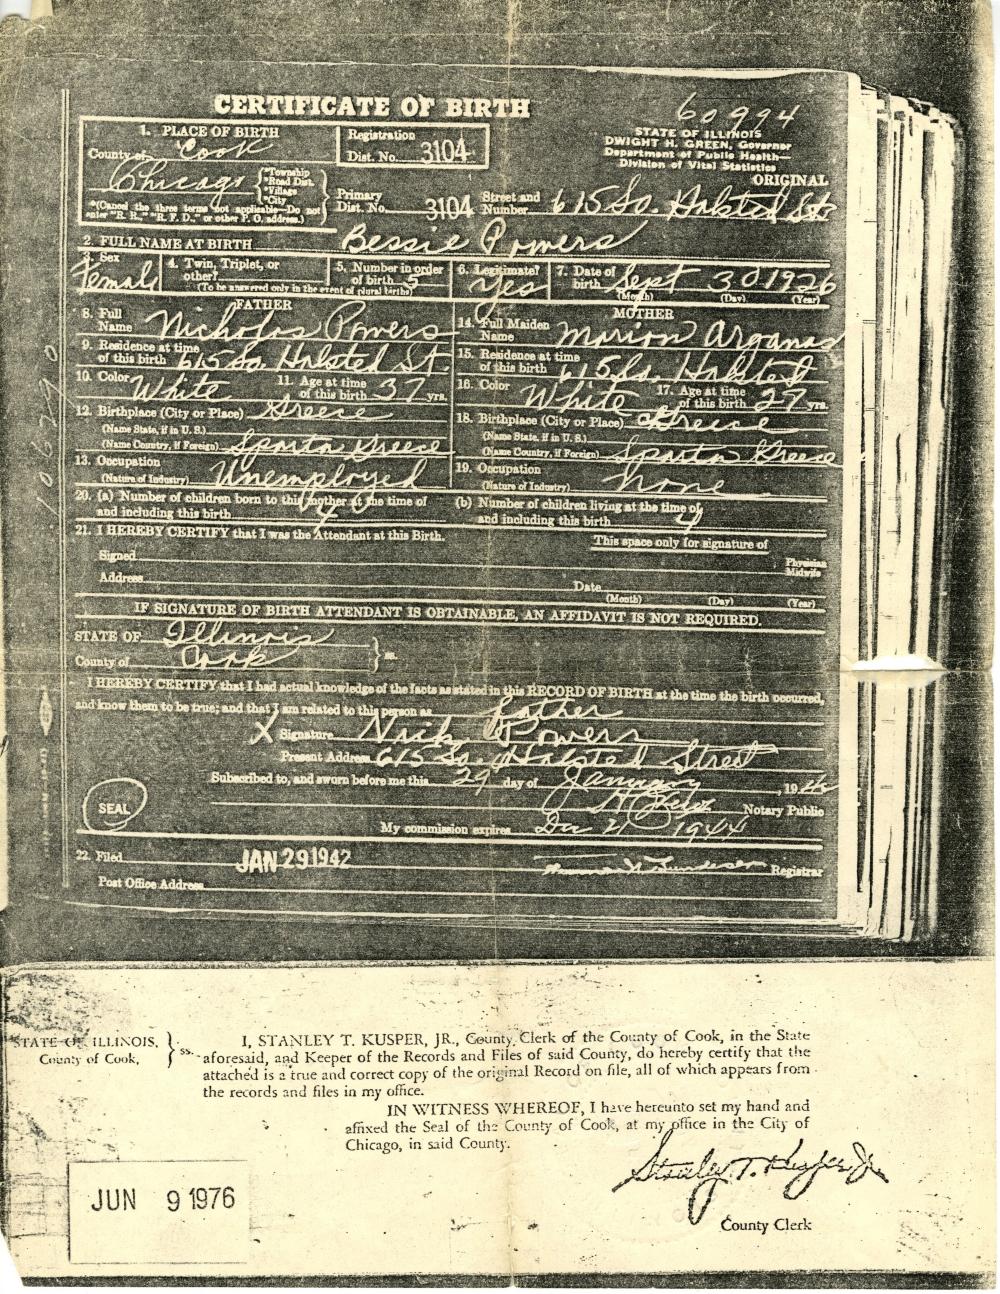 CERTIFICATE OF BIRTH
60994
STATE OF ILLINOIS
DWIGHT H. GREEN, Governor
Department of Public Health—
Division of Vital Statistics
ORIGINAL
1. PLACE OF BIRTH
County of Cook
Registration
Dist. No. 3104
Chicago
*Township
*Road Dist.
*Village
*City
*(Cancel the three terms not applicable—Do not
enter "R. R.," "R. F. D.," or other P. O. address.)
Primary
Dist. No. 3104
Street and
Number 615 So. Halsted St.
2. FULL NAME AT BIRTH Bessie Powers
3. Sex
Female
4. Twin, Triplet, or
other?
5. Number in order
of birth 5
(To be answered only in the event of plural births)
6. Legitimate?
Yes
7. Date of
birth Sept 30 1926
(Month) (Day) (Year)
FATHER
8. Full
Name Nicholas Powers
9. Residence at time
of this birth 615 So. Halsted St.
10. Color White
11. Age at time
of this birth 37 yrs.
12. Birthplace (City or Place) Greece
(Name State, if in U. S.)
(Name Country, if Foreign) Sparta Greece
13. Occupation
(Nature of Industry) Unemployed
MOTHER
14. Full Maiden
Name Marion Arganas
15. Residence at time
of this birth 615 So. Halsted
16. Color White
17. Age at time
of this birth 27 yrs.
18. Birthplace (City or Place) Greece
(Name State, if in U. S.)
(Name Country, if Foreign) Sparta Greece
19. Occupation
(Nature of Industry) None
20. (a) Number of children born to this mother at the time of
and including this birth 4
(b) Number of children living at the time of
and including this birth 4
21. I HEREBY CERTIFY that I was the Attendant at this Birth.
This space only for signature of
Signed
Physician
Midwife
Address
Date
(Month) (Day) (Year)
IF SIGNATURE OF BIRTH ATTENDANT IS OBTAINABLE, AN AFFIDAVIT IS NOT REQUIRED.
STATE OF Illinois
County of Cook
ss.
I HEREBY CERTIFY that I had actual knowledge of the facts as stated in this RECORD OF BIRTH at the time the birth occurred,
and know them to be true; and that I am related to this person as father
X Signature Nick Powers
Present Address 615 So. Halsted Street
Subscribed to, and sworn before me this 29 day of January, 1942
SEAL
Notary Public
My commission expires 1944
22. Filed JAN 29 1942
Registrar
Post Office Address
STATE OF ILLINOIS,
County of Cook,
ss.
I, STANLEY T. KUSPER, JR., County Clerk of the County of Cook, in the State
aforesaid, and Keeper of the Records and Files of said County, do hereby certify that the
attached is a true and correct copy of the original Record on file, all of which appears from
the records and files in my office.
IN WITNESS WHEREOF, I have hereunto set my hand and
affixed the Seal of the County of Cook, at my office in the City of
Chicago, in said County.
Stanley T. Kusper Jr
County Clerk
JUN 9 1976